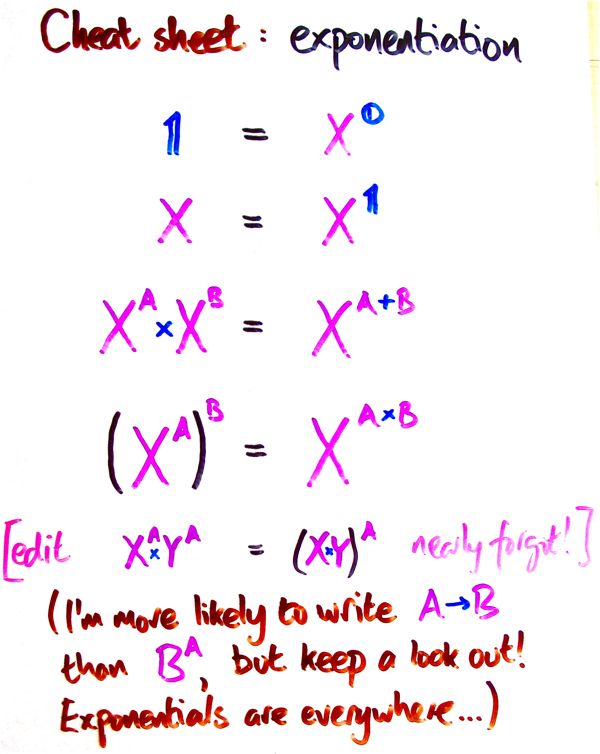 Cheat sheet: exponentiation
𝟙 = X^𝟘
X = X^𝟙
X^A × X^B = X^(A+B)
(X^A)^B = X^(A×B)
[edit X^A × Y^A = (X×Y)^A nearly forgot!]
(I'm more likely to write A→B
than B^A, but keep a look out!
Exponentials are everywhere...)